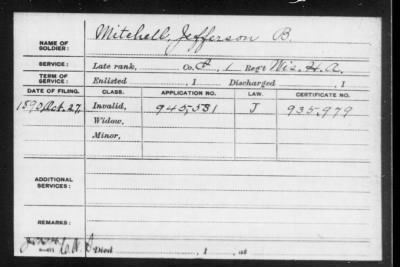 NAME OF SOLDIER: Mitchell, Jefferson B.
SERVICE: Late rank, Co. 1 Reg't Wis. H.A.
TERM OF SERVICE: Enlisted , 1 Discharged , 1
DATE OF FILING. CLASS. APPLICATION NO. LAW. CERTIFICATE NO.
1890, Oct. 27. Invalid, 945,531 J 935,979
Widow,
Minor,
ADDITIONAL SERVICES:
REMARKS:
Died , 1 , at